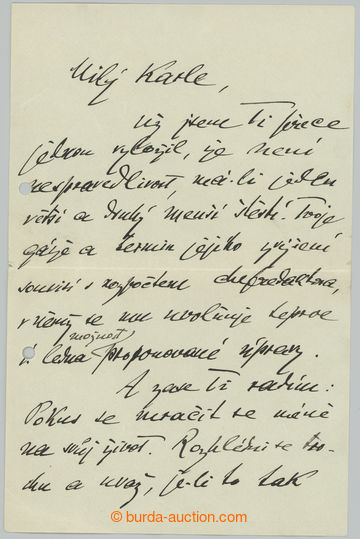 Milý Karle,
už jsem Ti přece
jednou vyložil, že není
nespravedlivost, má-li jeden
větší a druhý menší štěstí. Tvoje
gáže a termín jejího zvýšení
souvisí s rozpočtem chefredaktora,
v němž se mu uvolňuje teprve
možnost
1. ledna proponované úpravy.
A zase Ti radím:
Pokus se mračit se méně
na svůj život. Rozhlédni se
a uvaž, je-li to tak
© burda-auction.com